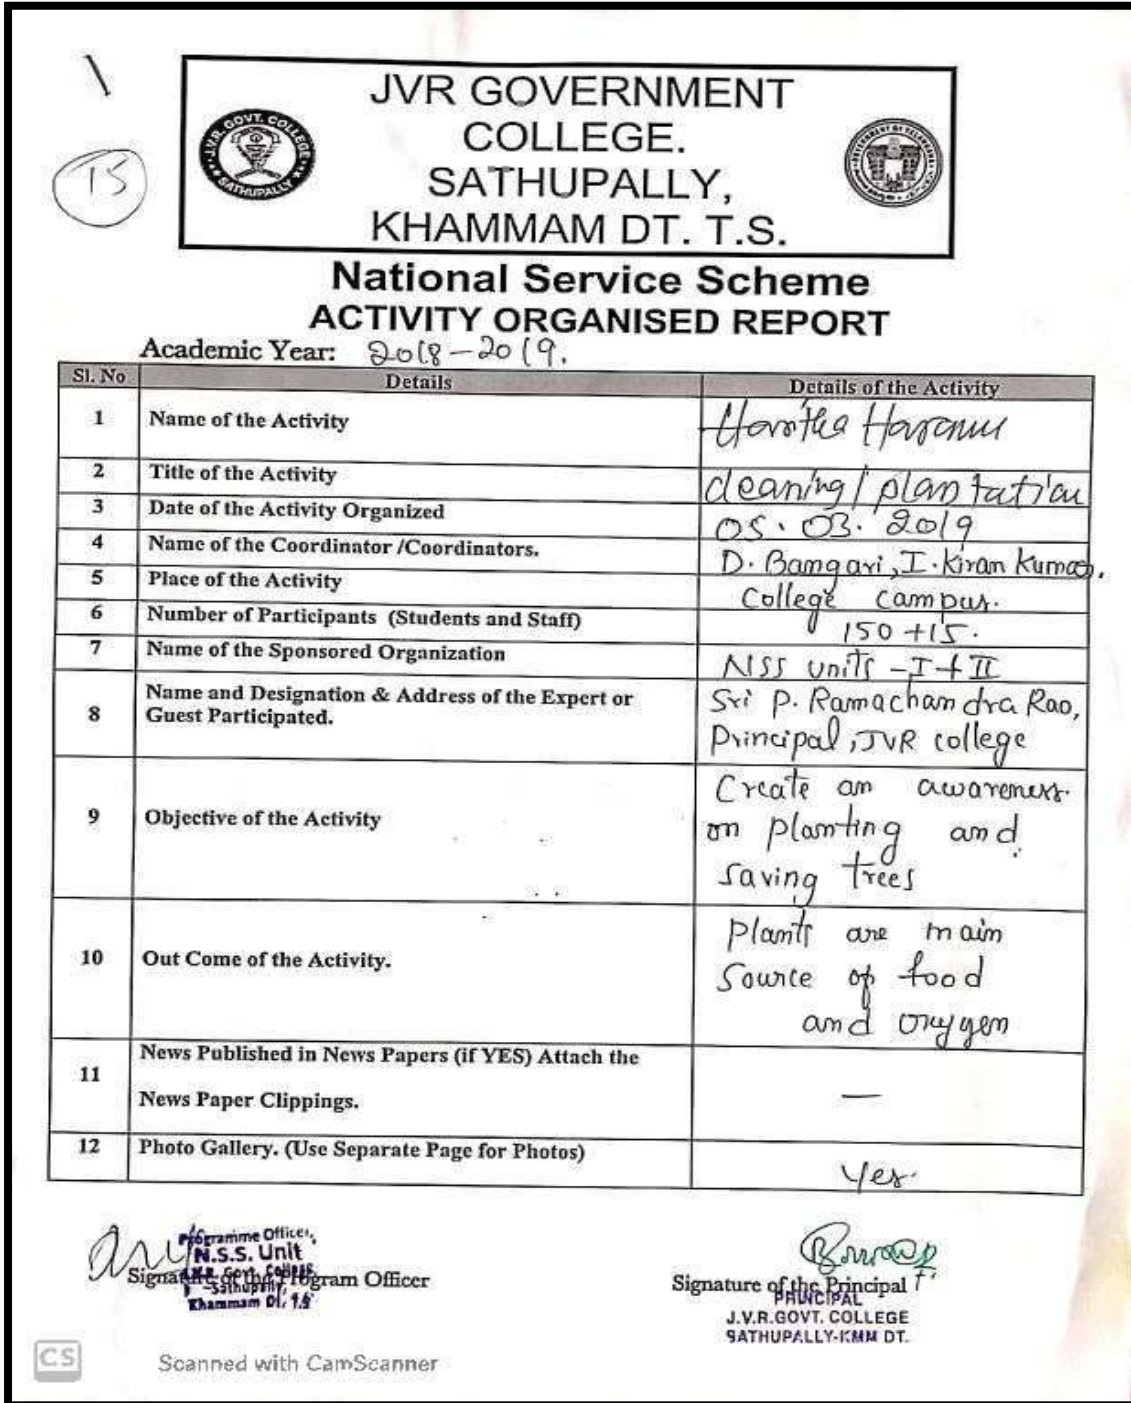 \
15
JVR GOVERNMENT
COLLEGE.
SATHUPALLY,
KHAMMAM DT. T.S.
J.V.R. GOVT. COLLEGE
SATHUPALLY
National Service Scheme
ACTIVITY ORGANISED REPORT
Academic Year: 2018-2019.
Sl. No Details Details of the Activity
1 Name of the Activity Haritha Haram
2 Title of the Activity cleaning/plantation
3 Date of the Activity Organized 05.03.2019
4 Name of the Coordinator /Coordinators. D. Bangari, I. Kiran Kumar.
5 Place of the Activity College campus.
6 Number of Participants (Students and Staff) 150+15.
7 Name of the Sponsored Organization NSS units -I+II
8 Name and Designation & Address of the Expert or
Guest Participated.
Sri P. Ramachandra Rao,
Principal, JVR college
9 Objective of the Activity
Create an awareness
on planting and
saving trees
10 Out Come of the Activity.
Plants are main
Source of food
and oxygen
11 News Published in News Papers (if YES) Attach the
News Paper Clippings.
—
12 Photo Gallery. (Use Separate Page for Photos) Yes.
Programme Officer,
N.S.S. Unit
Govt. College
Sathupally,
Khammam Dt. T.S
Signature of the Program Officer
Signature of the Principal
PRINCIPAL
J.V.R.GOVT. COLLEGE
SATHUPALLY-KMM DT.
CS
Scanned with CamScanner